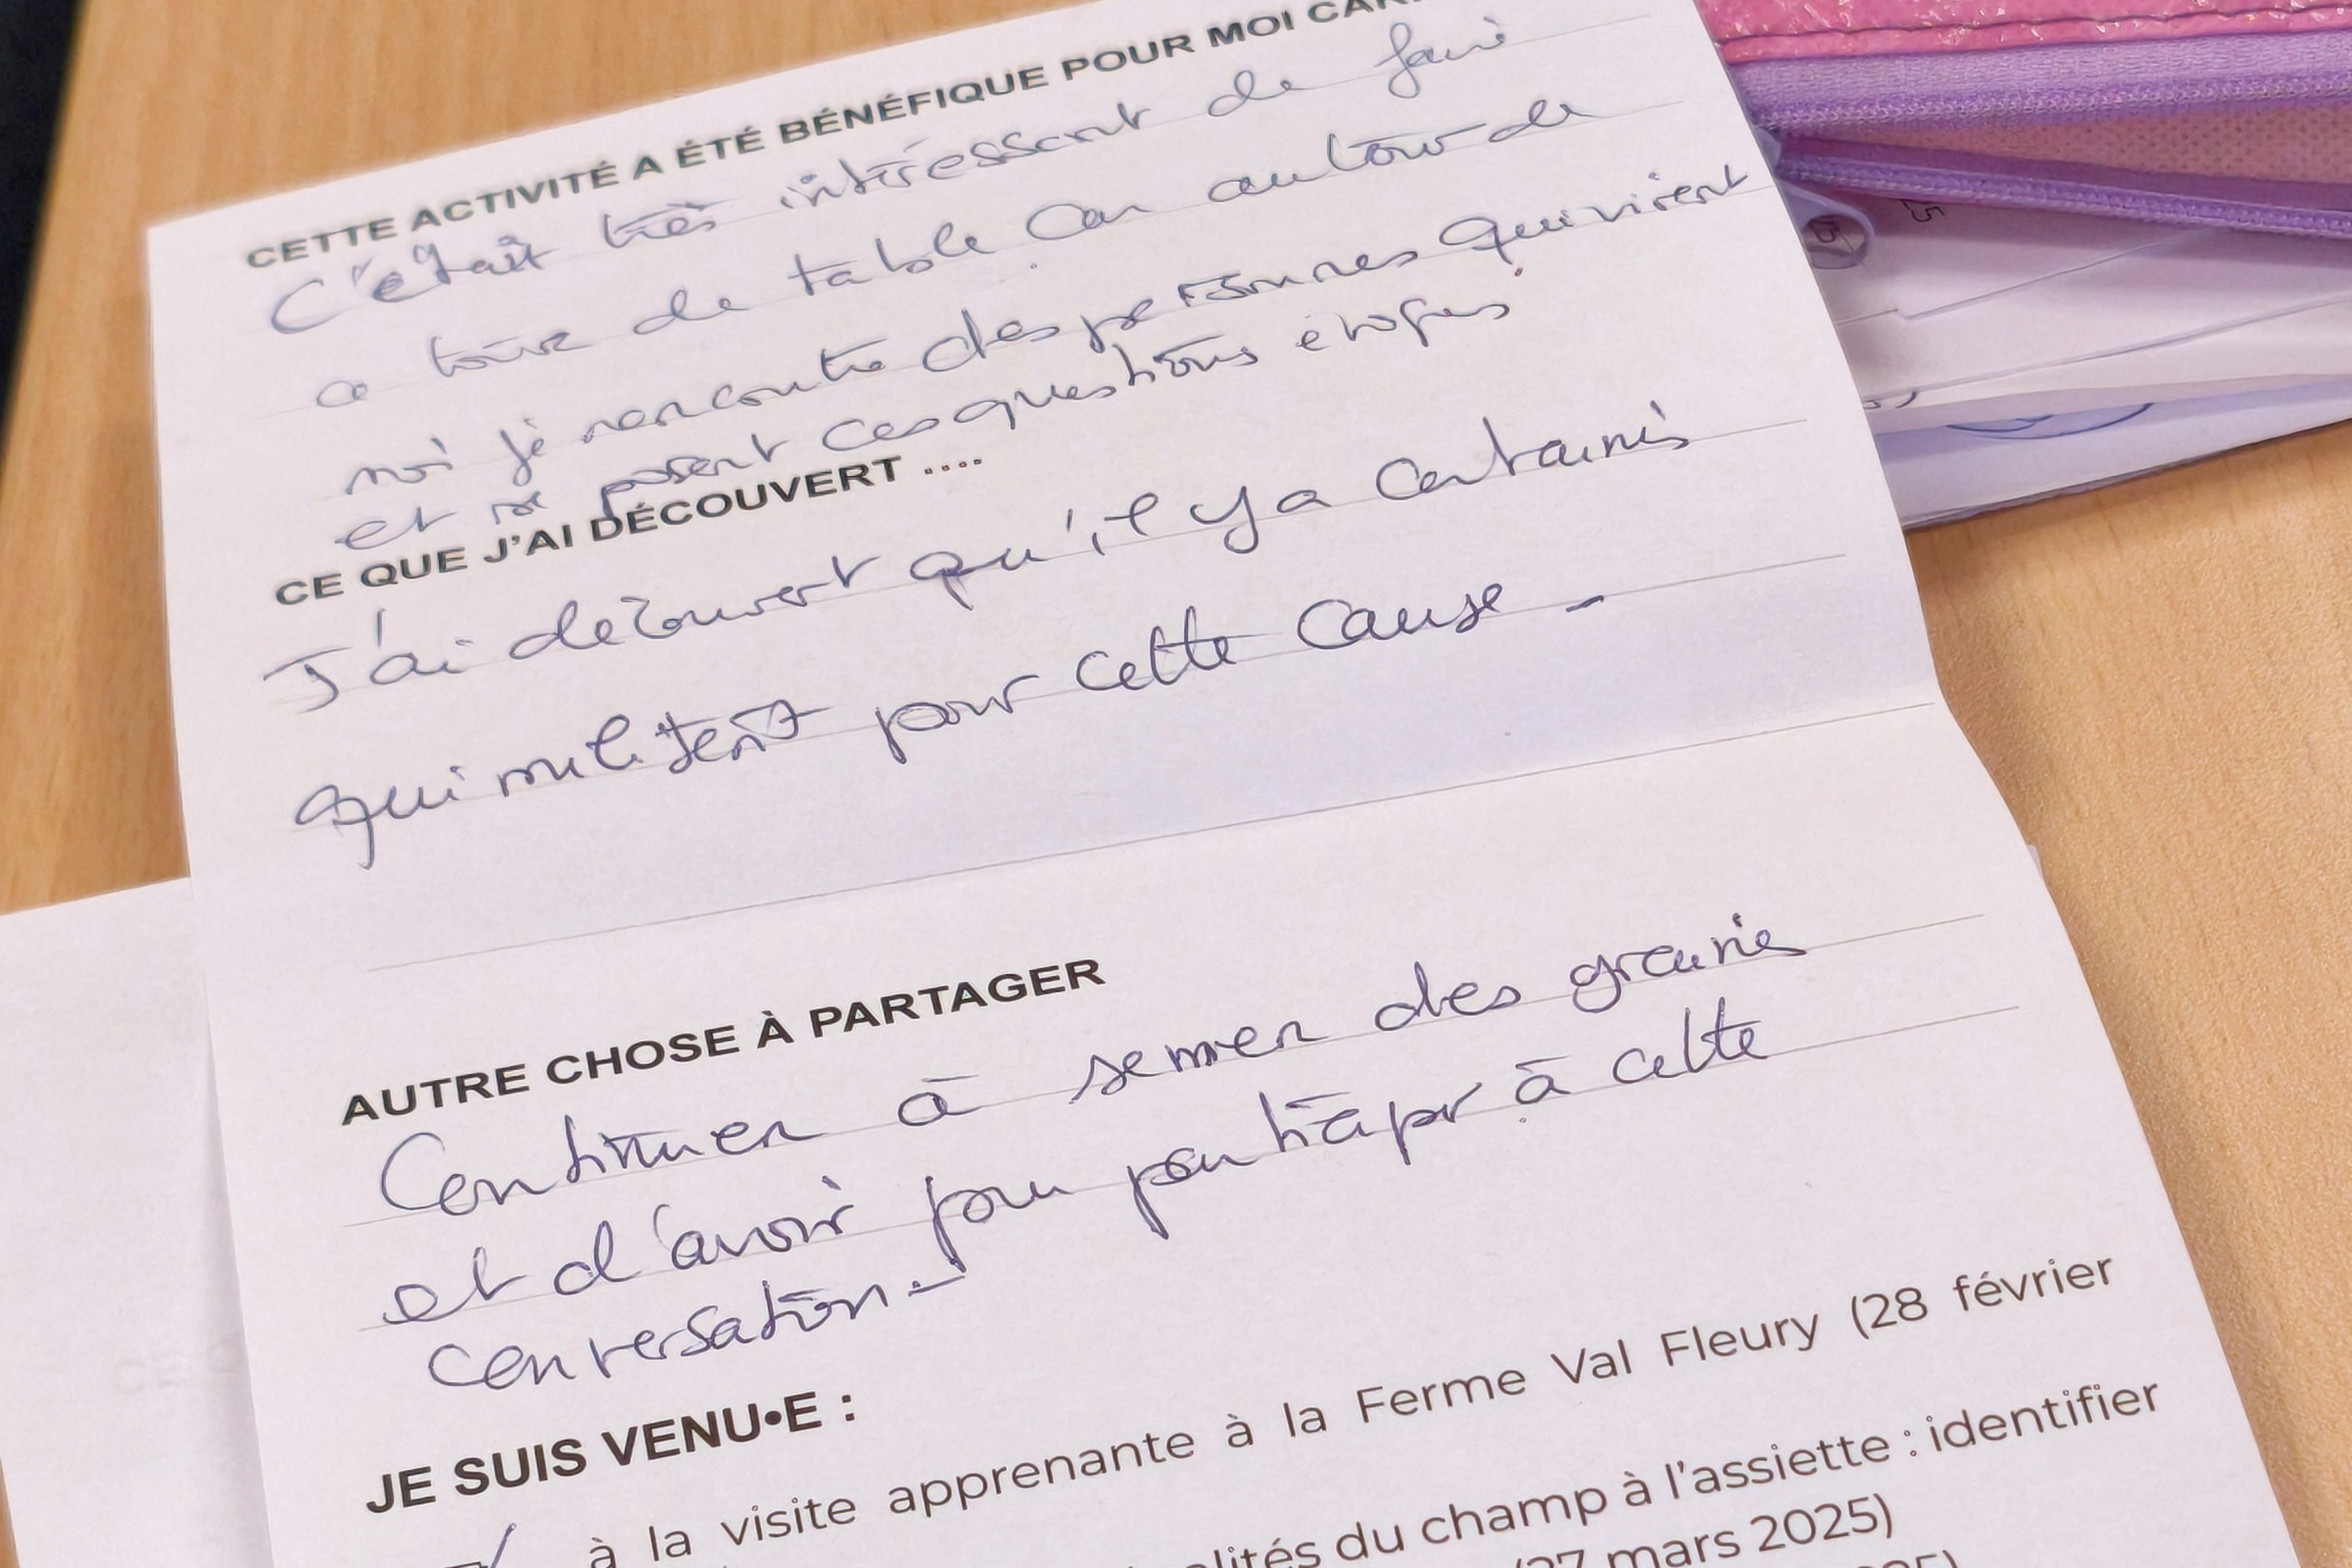 CETTE ACTIVITÉ A ÉTÉ BÉNÉFIQUE POUR MOI CAR
C'était très intéressant de faire
ce tour de table car autour de
moi je rencontre des personnes qui vivent
et se posent ces questions
CE QUE J'AI DÉCOUVERT ....
J'ai découvert qu'il y a certaines
qui militent pour cette cause -
AUTRE CHOSE À PARTAGER
Continuer à semer des graines
et d'avoir pour participer à cette
conversation -
JE SUIS VENU•E :
à la visite apprenante à la Ferme Val Fleury (28 février
du champ à l'assiette : identifier
mars 2025)